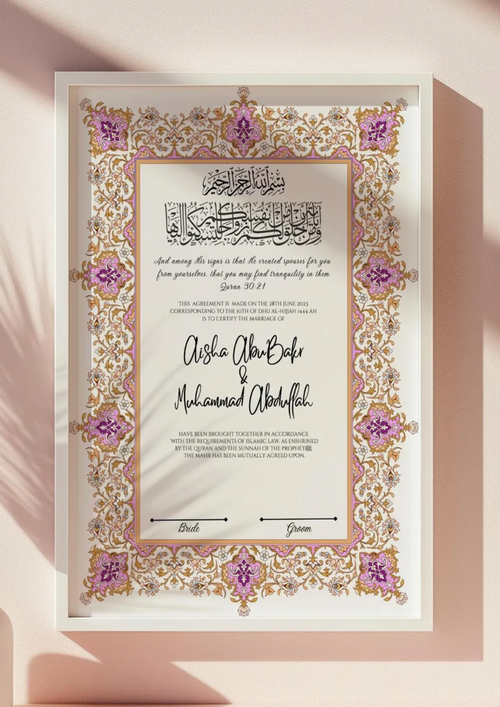 بسم الله الرحمن الرحيم
ومن آياته أن خلق لكم من أنفسكم أزواجا لتسكنوا إليها
And among His signs is that He created spouses for you
from yourselves, that you may find tranquility in them
Quran 30:21
THIS AGREEMENT IS MADE ON THE 28TH JUNE 2023
CORRESPONDING TO THE 10TH OF DHU AL-HIJJAH 1444 AH
IS TO CERTIFY THE MARRIAGE OF
Aisha AbuBakr
&
Muhammad Abdullah
HAVE BEEN BROUGHT TOGETHER IN ACCORDANCE
WITH THE REQUIREMENTS OF ISLAMIC LAW. AS ENSHRINED
BY THE QURAN AND THE SUNNAH OF THE PROPHET ﷺ
THE MAHR HAS BEEN MUTUALLY AGREED UPON.
Bride Groom